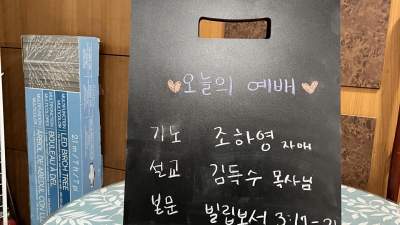 오늘의 예배
기도 조하영 자매
설교 김득수 목사님
본문 빌립보서 3:17-21
2.1 m / 7 ft
LED BIRCH TREE
MULTIFUNCTION
BOULEAU À DEL
MULTIFONCTION